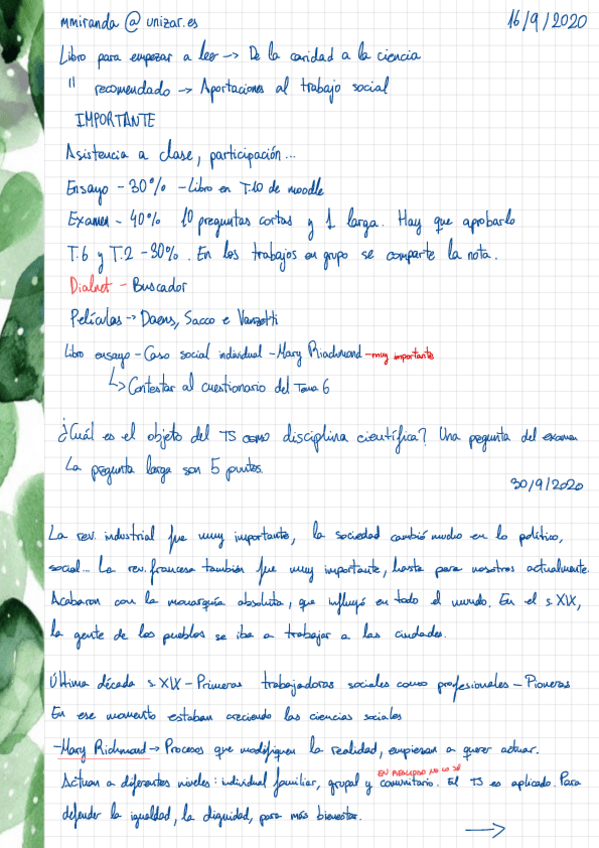 mmiranda @ unizar.es 16/9/2020
Libro para empezar a leer → De la caridad a la ciencia
" recomendado → Aportaciones al trabajo social
IMPORTANTE
Asistencia a clase, participación...
Ensayo - 30% - Libro en T.10 de moodle
Examen - 40% 10 preguntas cortas y 1 larga. Hay que aprobarlo
T.6 y T.2 - 30%. En los trabajos en grupo se comparte la nota.
Dialnet - Buscador
Películas → Daens, Sacco e Vanzetti
Libro ensayo - Caso social individual - Mary Riachmond - muy importante
↳ Contestar al cuestionario del Tema 6
¿Cuál es el objeto del TS como disciplina científica? Una pregunta del examen
La pregunta larga son 5 puntos.
30/9/2020
La rev. industrial fue muy importante, la sociedad cambió mucho en lo político,
social... La rev. francesa también fue muy importante, hasta para nosotros actualmente.
Acabaron con la monarquía absoluta, que influyó en todo el mundo. En el s. XIX,
la gente de los pueblos se iba a trabajar a las ciudades.
Última década s. XIX - Primeras trabajadoras sociales como profesionales - Pioneras
En ese momento estaban creciendo las ciencias sociales
- Mary Richmond → Procesos que modifiquen la realidad, empiezan a querer actuar.
EN PRINCIPIO NO LO SÉ
Actuan a diferentes niveles: individual familiar, grupal y comunitario. El TS es aplicado. Para
defender la igualdad, la dignidad, para más bienestar.
→